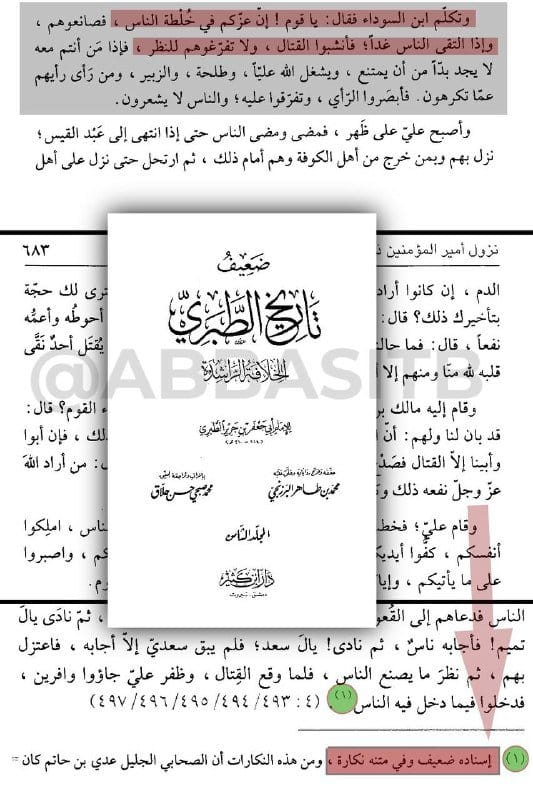 وتكلّم ابن السوداء فقال: يا قوم ! إنّ عزّكم في خُلْطة الناس ، فصانعوهم ،
وإذا التقى الناس غداً؛ فأنشبوا القتال ، ولا تفرّغوهم للنظر ، فإذا مَن أنتم معه
لا يجد بدّاً من أن يمتنع ، ويشغل الله عليّاً ، وطلحة ، والزبير ، ومن رَأى رأيهم
عمّا تكرهون. فأبصَروا الرّأي ، وتفرّقوا عليه؛ والناس لا يشعرون.
وأصبح عليّ على ظَهر ، فمضى ومضى الناس حتى إذا انتهى إلى عَبْد القيس؛
نزل بهم وبمن خرج من أهل الكوفة وهم أمام ذلك ، ثم ارتحل حتى نزل على أهل
نزول أمير المؤمنين
٦٨٣
الدم ، إن كانوا أراد
ترى لك حجّة
بتأخيرك ذلك؟ قال:
أحوطُه وأعمُّه
نفعاً ، قال: فما حالنا
يُقتَل أحدٌ نَقَّى
قلبه لله منّا ومنهم إلا
وقام إليه مالك بن
القوم؟ قال:
قد بان لنا ولهم: أنّ
ذلك ، فإن أبوا
وأبينا إلاّ القتال فصَدْ
من أراد اللهَ
عزّ وجلّ نفعه ذلك
وقام عليّ؛ فخط
الناس ، املِكوا
أنفسكم ، كفُّوا أيديك
واصبروا
على ما يأتيكم ، وإيا
ضَعِيفُ
تَارِيخُ الطَّبَرِيّ
الخِلَافَة الرَّاشِدَة
للإمام أبي جعفر بن جرير الطبري
محمد بن طاهر البرزنجي
محمد صبحي حسن حلاق
المجلد الثامن
دار ابن كثير
دمشق ـ بيروت
@ABBASITB
الناس فدعاهم إلى القُعو
، ثمّ نادَى يالَ
تميم! فأجابه ناسٌ ، ثم نادى! يالَ سعد؛ فلم يبق سعديّ إلاّ أجابه ، فاعتزل
بهم ، ثم نظرَ ما يصنع الناس ، فلما وقع القِتال ، وظفر عليّ جاؤوا وافرين ،
فدخلوا فيما دخل فيه الناس (١) . (٤ : ٤٩٣/ ٤٩٤/ ٤٩٥/ ٤٩٦/ ٤٩٧)
(١) إسناده ضعيف وفي متنه نكارة ، ومن هذه النكارات أن الصحابي الجليل عدي بن حاتم كان =